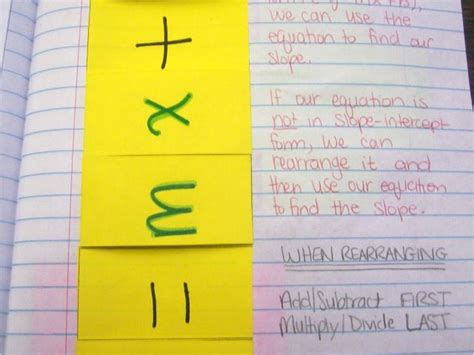 = m x +
we can use the
equation to find our
slope.
If our equation is
not in slope-intercept
form, we can
rearrange it and
then use our equation
to find the slope.
WHEN REARRANGING
Add/Subtract FIRST
Multiply/Divide LAST